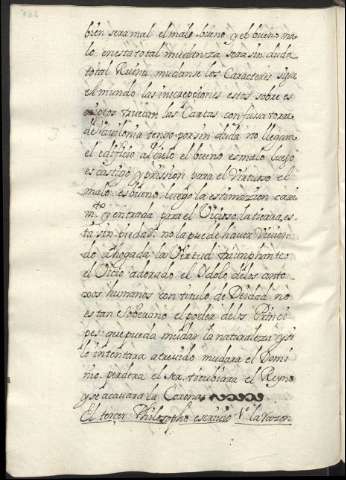 bien sera mal el malo bueno y el bueno ma
lo, en esta total mudanza sera sin duda
total Ruina mudanse los Caracteres siga
el mundo las inscrepciones estos sobre es
criptos varian las Cartas confussa torre
de Bavilonia tengo por sin duda no llegara
el edificio al Cielo el bueno es malo luego
es castigo y prission para el Virtuoso el
malo es bueno luego la estimazion cari
ño y entrada para el Vicioso la tierra es
ta sin piedad no la puede haver vivien
do Ahogada la Virtud triumphante
el Vicio adorado el Idolo de los anto
xos humanos con titulo de Deidad no
es tan Soberano el poder de los Princi
pes que pueda mudar la naturaleza y si
lo intentara atrevido mudara el Domi
nio perdera el ser titubiara el Reyno
y se acavara la Corona
El tercer Philosopho escrivio la razon